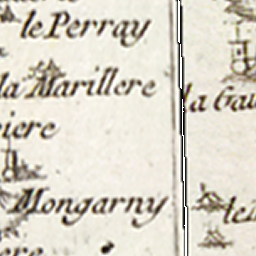 le Perray
la Marillere
iere
Mongarny
ere
la Gau
le